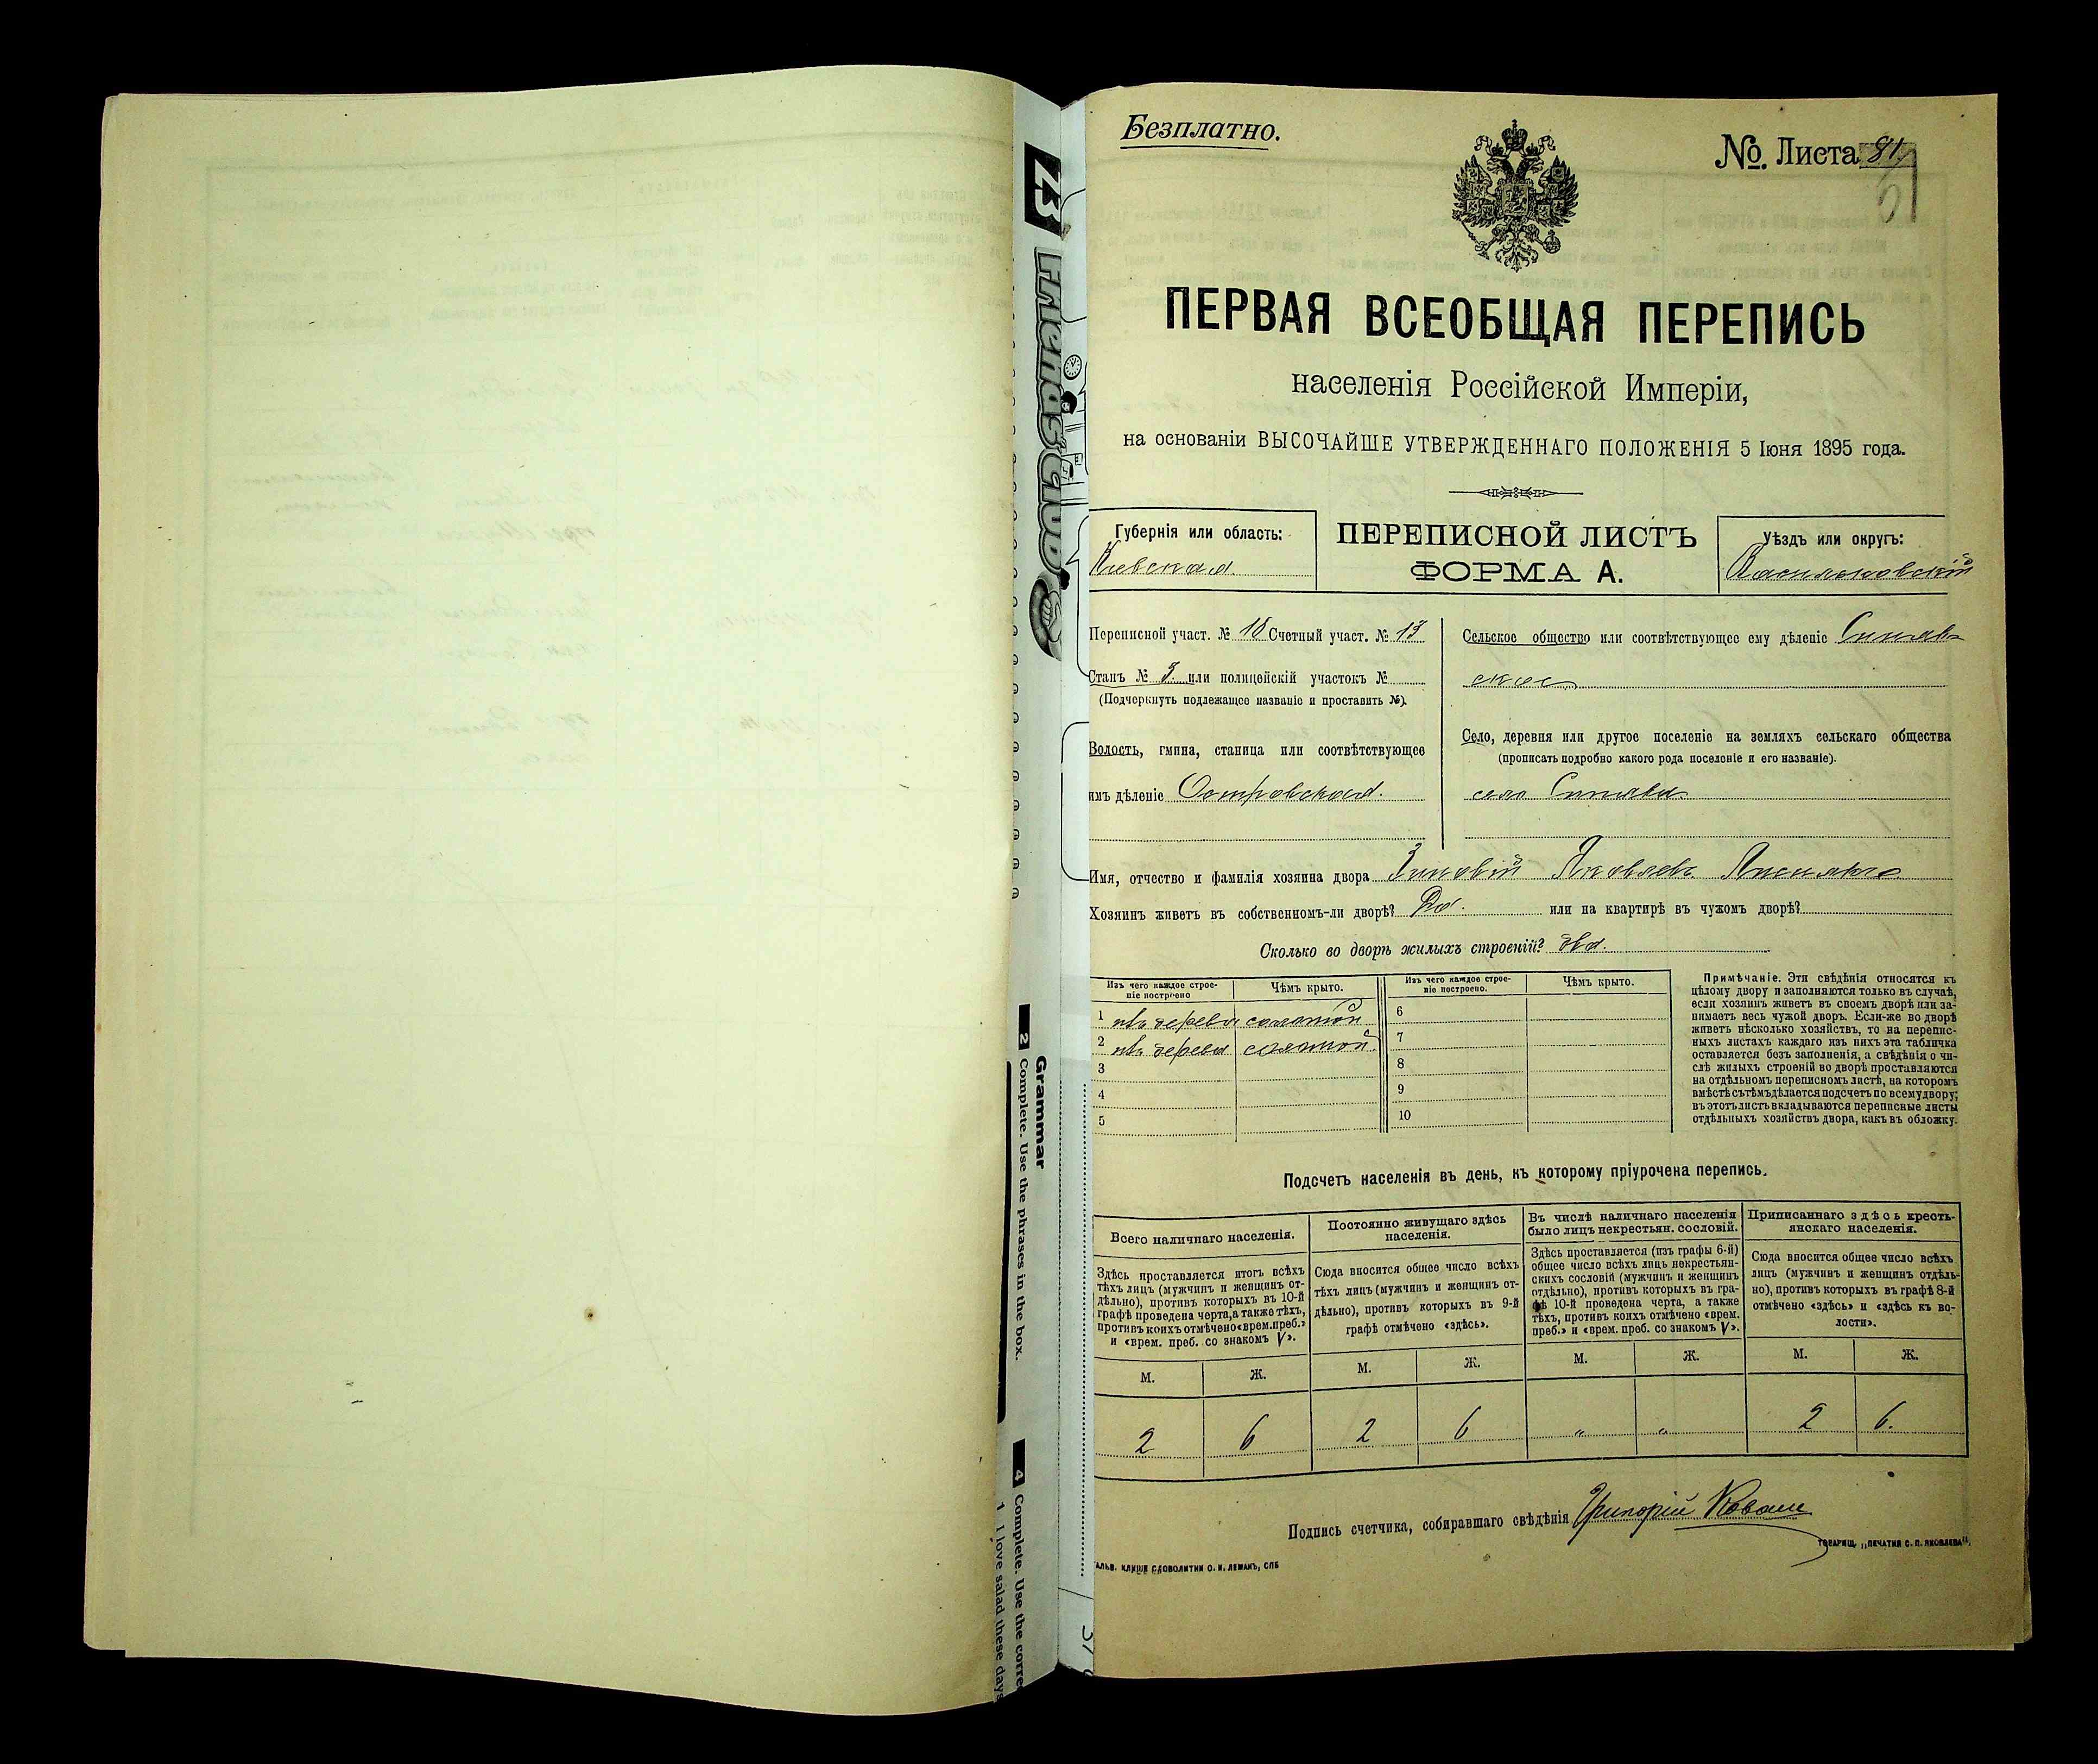 Безплатно.
№ Листа 81
ПЕРВАЯ ВСЕОБЩАЯ ПЕРЕПИСЬ
населенія Россійской Имперіи,
на основаніи ВЫСОЧАЙШЕ УТВЕРЖДЕННАГО ПОЛОЖЕНІЯ 5 Іюня 1895 года.
Губернія или область:
Кіевская.
ПЕРЕПИСНОЙ ЛИСТЪ
ФОРМА А.
Уѣздъ или округъ:
Васильковскій
Переписной участ. № 18 Счетный участ. № 13
Станъ № 3 или полицейскій участокъ №
(Подчеркнуть подлежащее названіе и проставить №).
Волость, гмина, станица или соотвѣтствующее
имъ дѣленіе Островская.
Сельское общество или соотвѣтствующее ему дѣленіе Синяв-
ское
Село, деревня или другое поселеніе на земляхъ сельскаго общества
(прописать подробно какого рода поселеніе и его названіе).
село Синява
Имя, отчество и фамилія хозяина двора Зиновій Яковлевъ
Хозяинъ живетъ въ собственномъ-ли дворѣ? Да. или на квартирѣ въ чужомъ дворѣ?
Сколько во дворѣ жилыхъ строеній? два.
Изъ чего каждое строе-
ніе построено
Чѣмъ крыто.
Изъ чего каждое строе-
ніе построено.
Чѣмъ крыто.
1 изъ дерева соломой
2 изъ дерева соломой
3
4
5
6
7
8
9
10
Примѣчаніе. Эти свѣдѣнія относятся къ
цѣлому двору и заполняются только въ случаѣ,
если хозяинъ живетъ въ своемъ дворѣ или за-
нимаетъ весь чужой дворъ. Если-же во дворѣ
живетъ нѣсколько хозяйствъ, то на перепис-
ныхъ листахъ каждаго изъ нихъ эта табличка
оставляется безъ заполненія, а свѣдѣнія о чи-
слѣ жилыхъ строеній во дворѣ проставляются
на отдѣльномъ переписномъ листѣ, на которомъ
вмѣстѣ съ тѣмъ дѣлается подсчетъ по всему двору;
въ этотъ листъ вкладываются переписные листы
отдѣльныхъ хозяйствъ двора, какъ въ обложку.
Подсчетъ населенія въ день, къ которому пріурочена перепись.
Всего наличнаго населенія.
Здѣсь проставляется итогъ всѣхъ
тѣхъ лицъ (мужчинъ и женщинъ от-
дѣльно), противъ которыхъ въ 10-й
графѣ проведена черта, а также тѣхъ,
противъ коихъ отмѣчено «врем. преб.»
и «врем. преб. со знакомъ V».
М. Ж.
2 6
Постоянно живущаго здѣсь
населенія.
Сюда вносится общее число всѣхъ
тѣхъ лицъ (мужчинъ и женщинъ от-
дѣльно), противъ которыхъ въ 9-й
графѣ отмѣчено «здѣсь».
М. Ж.
2 6
Въ числѣ наличнаго населенія
было лицъ некрестьян. сословій.
Здѣсь проставляется (изъ графы 6-й)
общее число всѣхъ лицъ некрестьян-
скихъ сословій (мужчинъ и женщинъ
отдѣльно), противъ которыхъ въ гра-
фѣ 10-й проведена черта, а также
тѣхъ, противъ коихъ отмѣчено «врем.
преб.» и «врем. преб. со знакомъ V».
М. Ж.
„ „
Приписаннаго здѣсь кресть-
янскаго населенія.
Сюда вносится общее число всѣхъ
лицъ (мужчинъ и женщинъ отдѣль-
но), противъ которыхъ въ графѣ 8-й
отмѣчено «здѣсь» и «здѣсь къ во-
лости».
М. Ж.
2 6.
Подпись счетчика, собиравшаго свѣдѣнія Григорій
ТОВАРИЩ. „ПЕЧАТНЯ С. П. ЯКОВЛЕВА".
АЛЬВ. КЛИШЕ СЛОВОЛИТНИ О. И. ЛЕМАНЪ, СПБ
Friends Club
Grammar
2 Complete. Use the phrases in the box.
4 Complete. Use the corre
1 I love salad these days